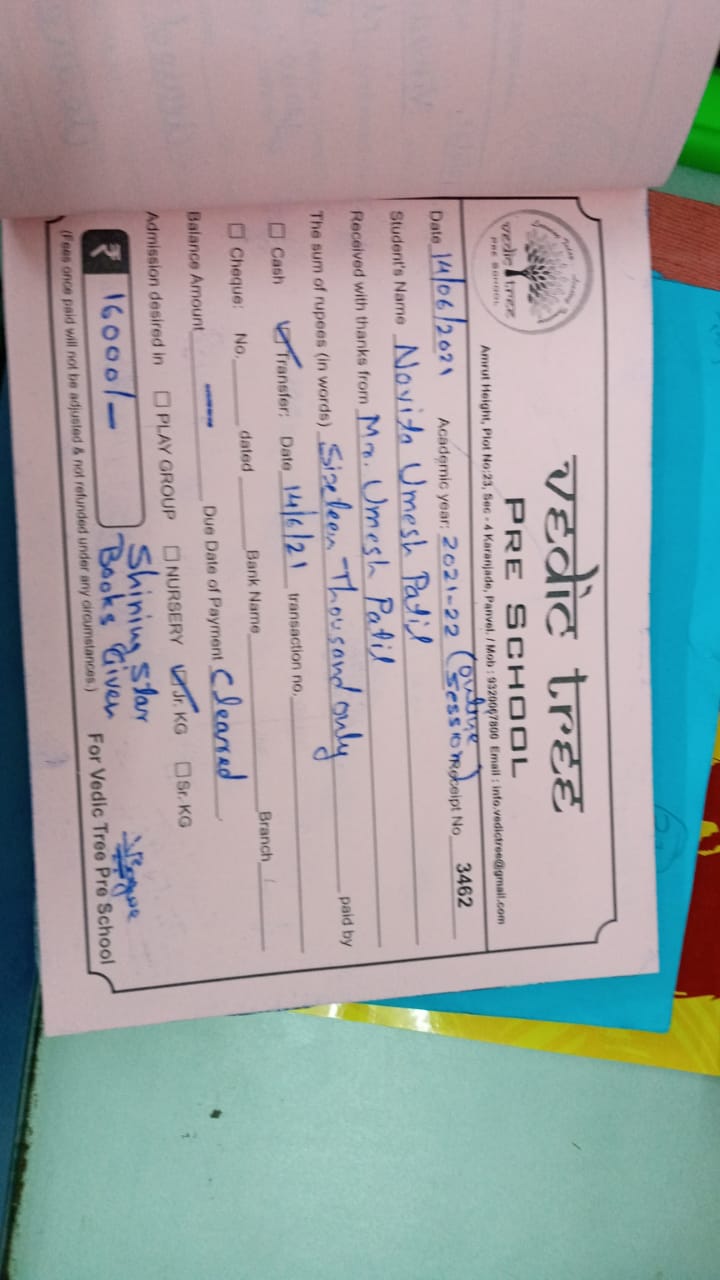 vedic tree
PRE SCHOOL
vedic tree
PRE SCHOOL
Amrut Height, Plot No:23, Sec - 4 Karanjade, Panvel. / Mob : 9320067800 Email : info.vedictree@gmail.com
Date 14/06/2021 Academic year: 2021-22 (online session) Receipt No. 3462
Student's Name Navita Umesh Patil
Received with thanks from Mr. Umesh Patil
The sum of rupees (in words) Sixteen Thousand only paid by
Cash Transfer: Date 14/6/21 transaction no.
Cheque: No. dated Bank Name Branch
Balance Amount Due Date of Payment Cleared
Admission desired in PLAY GROUP NURSERY Jr. KG Sr. KG
₹ 16000/- Shining Star
Books Given
For Vedic Tree Pre School
(Fees once paid will not be adjusted & not refunded under any circumstances)